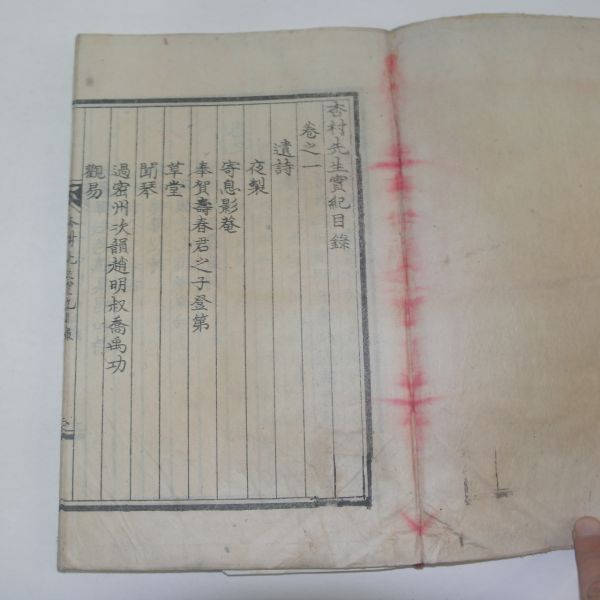 杏村先生實紀目錄
卷之一
遺詩
夜製
寄息影菴
奉賀壽春君之子登第
草堂
聞琴
過密州次韻趙明叔喬禹功
觀易